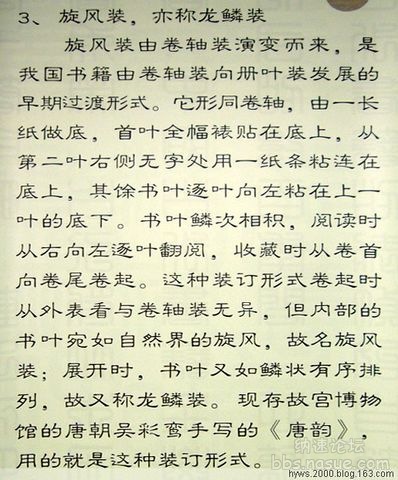 3、旋风装，亦称龙鳞装
旋风装由卷轴装演变而来，是
我国书籍由卷轴装向册叶装发展的
早期过渡形式。它形同卷轴，由一长
纸做底，首叶全幅裱贴在底上，从
第二叶右侧无字处用一纸条粘连在
底上，其馀书叶逐叶向左粘在上一
叶的底下。书叶鳞次相积，阅读时
从右向左逐叶翻阅，收藏时从卷首
向卷尾卷起。这种装订形式卷起时
从外表看与卷轴装无异，但内部的
书叶宛如自然界的旋风，故名旋风
装；展开时，书叶又如鳞状有序排
列，故又称龙鳞装。现存故宫博物
馆的唐朝吴彩鸾手写的《唐韵》，
用的就是这种装订形式。
纳速论坛
bbs.nasue.com
hyws.2000.blog.163.com